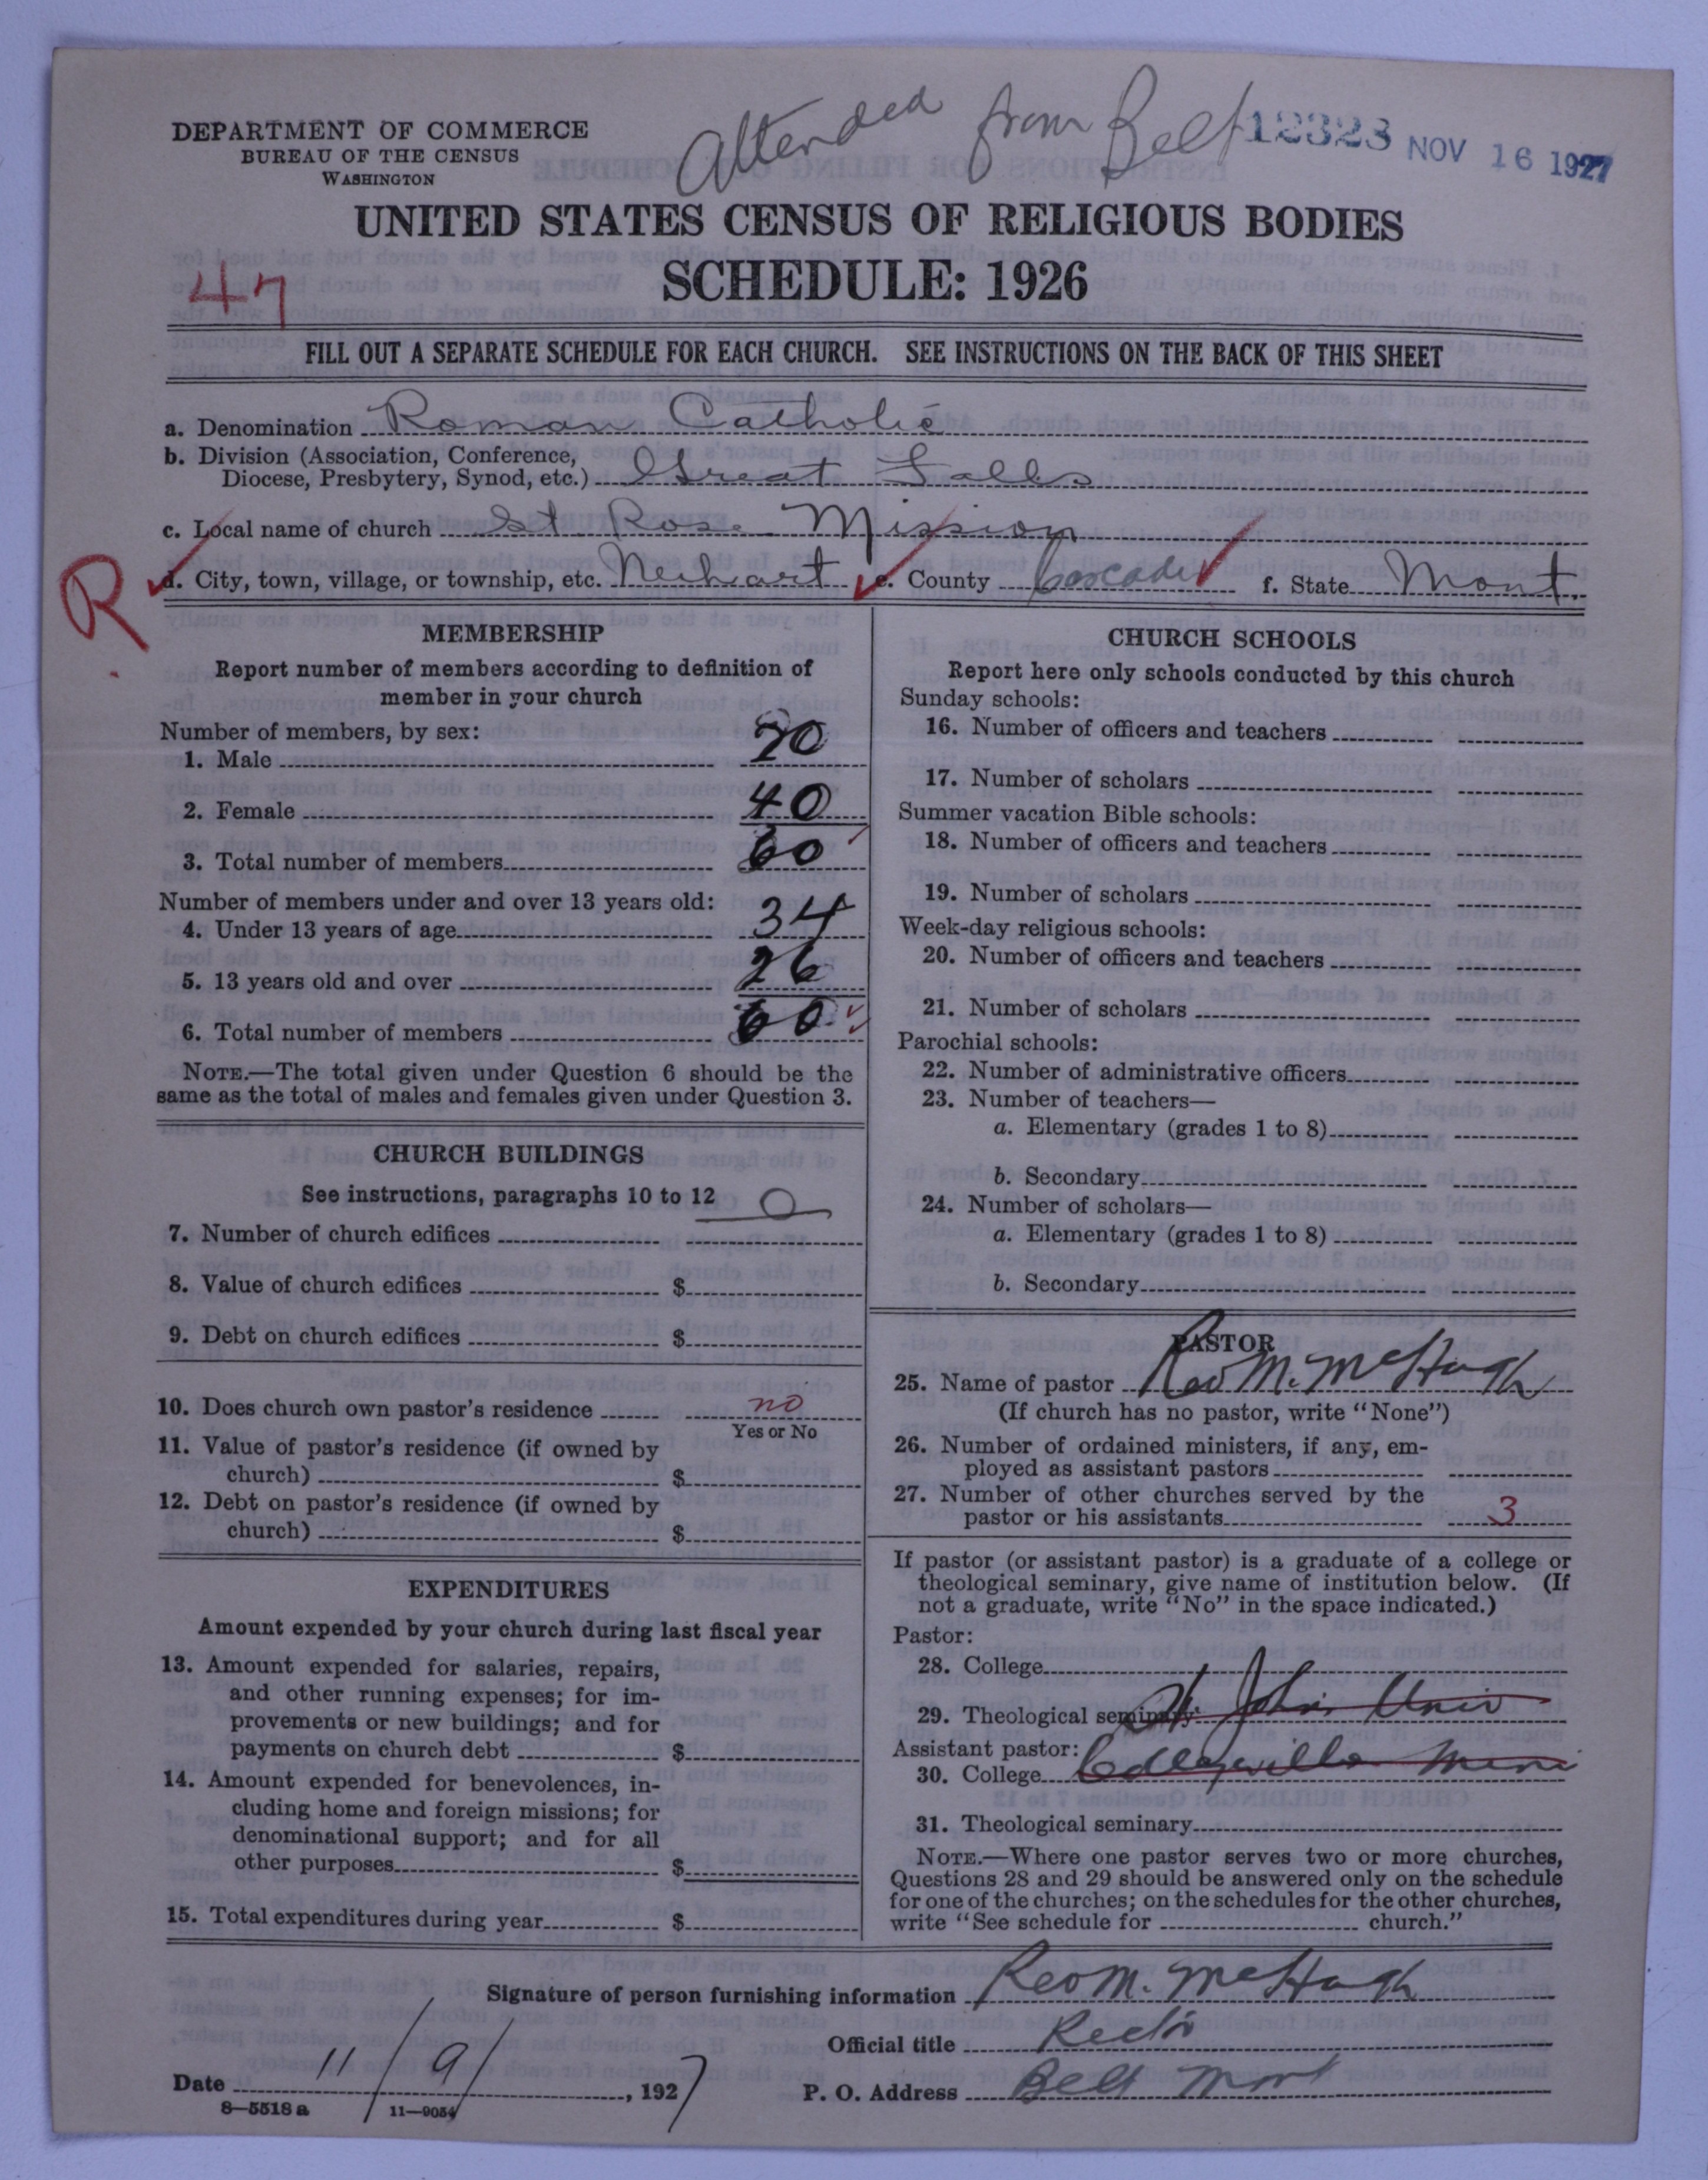 Attended from Belt 12323 NOV 16 1927
DEPARTMENT OF COMMERCE
BUREAU OF THE CENSUS
WASHINGTON
UNITED STATES CENSUS OF RELIGIOUS BODIES
47
SCHEDULE: 1926
FILL OUT A SEPARATE SCHEDULE FOR EACH CHURCH. SEE INSTRUCTIONS ON THE BACK OF THIS SHEET
a. Denomination Roman Catholic
b. Division (Association, Conference,
Diocese, Presbytery, Synod, etc.) Great Falls
c. Local name of church St Rose Mission
R d. City, town, village, or township, etc. Neihart e. County Cascade f. State Mont.
MEMBERSHIP
Report number of members according to definition of
member in your church
Number of members, by sex:
1. Male 20
2. Female 40
3. Total number of members 60
Number of members under and over 13 years old:
4. Under 13 years of age 34
5. 13 years old and over 26
6. Total number of members 60
NOTE.—The total given under Question 6 should be the
same as the total of males and females given under Question 3.
CHURCH BUILDINGS
See instructions, paragraphs 10 to 12 0
7. Number of church edifices
8. Value of church edifices $
9. Debt on church edifices $
10. Does church own pastor's residence no
Yes or No
11. Value of pastor's residence (if owned by
church) $
12. Debt on pastor's residence (if owned by
church) $
EXPENDITURES
Amount expended by your church during last fiscal year
13. Amount expended for salaries, repairs,
and other running expenses; for im-
provements or new buildings; and for
payments on church debt $
14. Amount expended for benevolences, in-
cluding home and foreign missions; for
denominational support; and for all
other purposes $
15. Total expenditures during year $
CHURCH SCHOOLS
Report here only schools conducted by this church
Sunday schools:
16. Number of officers and teachers
17. Number of scholars
Summer vacation Bible schools:
18. Number of officers and teachers
19. Number of scholars
Week-day religious schools:
20. Number of officers and teachers
21. Number of scholars
Parochial schools:
22. Number of administrative officers
23. Number of teachers—
a. Elementary (grades 1 to 8)
b. Secondary
24. Number of scholars—
a. Elementary (grades 1 to 8)
b. Secondary
PASTOR
25. Name of pastor Rev M. McHugh
(If church has no pastor, write "None")
26. Number of ordained ministers, if any, em-
ployed as assistant pastors
27. Number of other churches served by the
pastor or his assistants 3
If pastor (or assistant pastor) is a graduate of a college or
theological seminary, give name of institution below. (If
not a graduate, write "No" in the space indicated.)
Pastor:
28. College
29. Theological seminary St John's Univ
Assistant pastor:
30. College Collegeville Minn
31. Theological seminary
NOTE.—Where one pastor serves two or more churches,
Questions 28 and 29 should be answered only on the schedule
for one of the churches; on the schedules for the other churches,
write "See schedule for church."
Signature of person furnishing information Rev M. McHugh
Official title Rector
Date 11/9/, 1927 P. O. Address Belt Mont
8—5518 a 11—9054